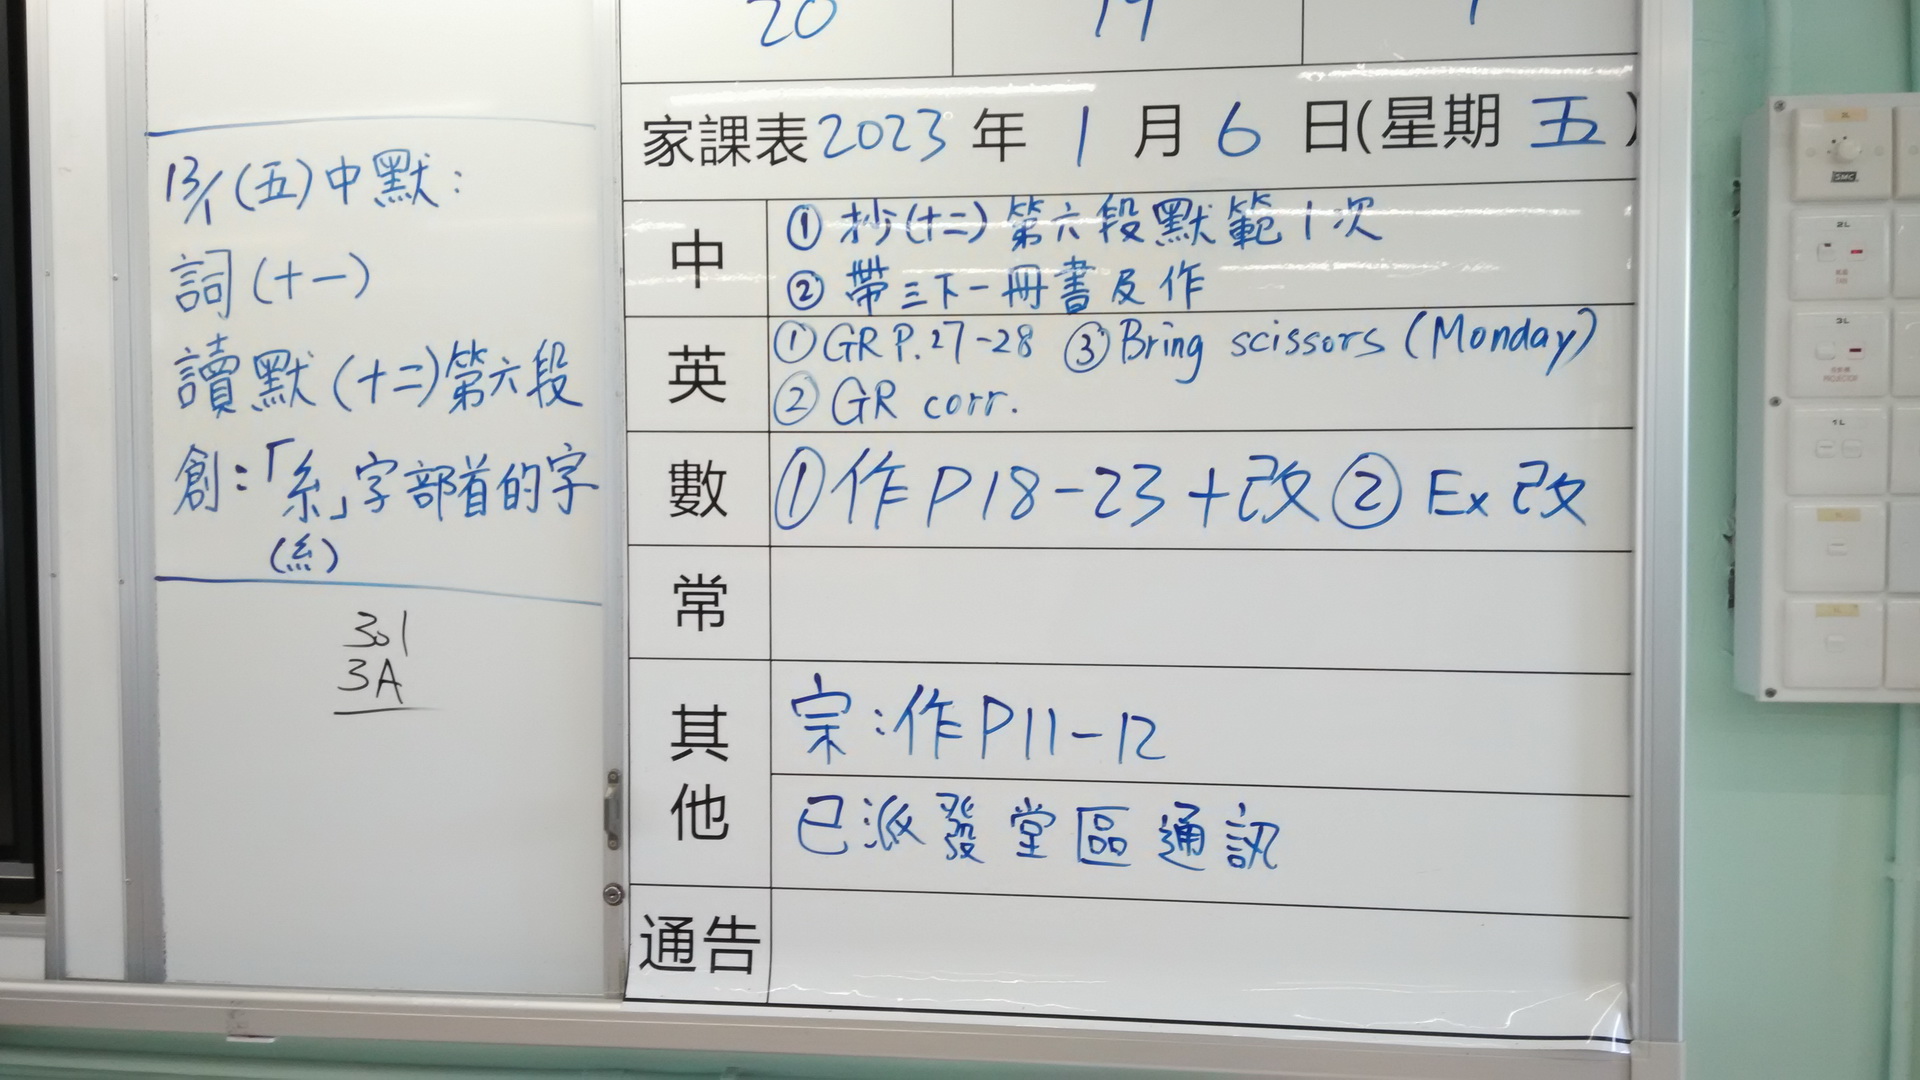 20 19
13/1(五)中默:
詞(十一)
讀默(十二)第六段
創:「糸」字部首的字
(糹)
301
3A
家課表2023年1月6日(星期五)
中
①抄(十二)第六段默範1次
②帶三下一冊書及作
英
①GR P.27-28 ③Bring scissors (Monday)
②GR corr.
數
①作P18-23+改②Ex改
常
其他
宗:作P11-12
已派發堂區通訊
通告
2L
3L
PROJECTOR
1L